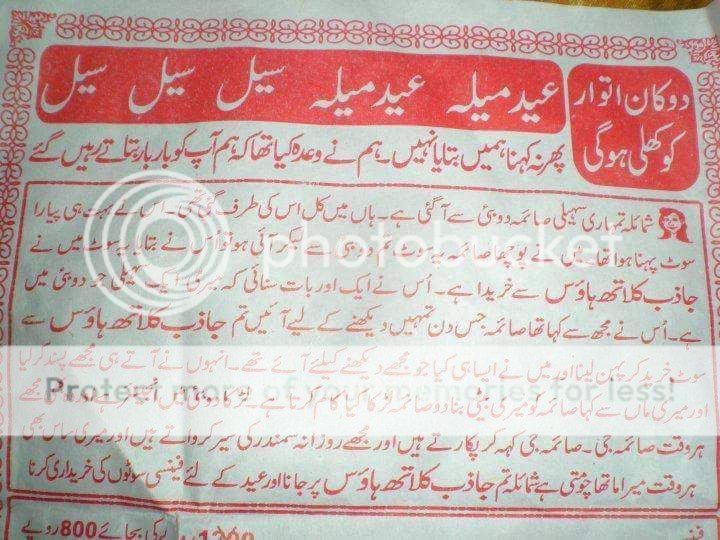 دوکان اتوار
کو کھلی ہوگی
عید میلہ عید میلہ سیل سیل سیل
پھر نہ کہنا ہمیں بتایا نہیں۔ ہم نے وعدہ کیا تھا کہ ہم آپ کو بار بار بتاتے رہیں گے
شمائلہ تمہاری سہیلی صائمہ دوبئی سے آ گئی ہے۔ ہاں میں کل اس کی طرف گئی تھی۔ اس نے بہت ہی پیارا
سوٹ پہنا ہوا تھا میں نے پوچھا صائمہ یہ سوٹ تم دوبئی سے لیکر آئی ہو تو اُس نے بتایا یہ سوٹ میں نے
جاذب کلاتھ ہاؤس سے خریدا ہے۔ اُس نے ایک اور بات سنائی کہ میری ایک سہیلی جو دوبئی میں
ہے۔ اُس نے مجھ سے کہا تھا صائمہ جس دن تمہیں دیکھنے کے لیے آئیں تم جاذب کلاتھ ہاؤس سے
سوٹ خرید کر پہن لینا اور میں نے ایسا ہی کیا جو مجھے دیکھنے کیلئے آئے تھے۔ انہوں نے آتے ہی مجھے پسند کر لیا
اور میری ماں سے کہا صائمہ کو میری بیٹی بنا دو صائمہ لڑکا کیا کام کرتا ہے۔ لڑکا دوبئی میں مجھے
ہر وقت صائمہ جی۔ صائمہ جی کہہ کر پکارتے ہیں اور مجھے روزانہ سمندر کی سیر کرواتے ہیں اور میری ساس بھی
ہر وقت میرا ماتھا چومتی ہے شمائلہ تم جاذب کلاتھ ہاؤس پر جانا اور عید کے لئے فینسی سوٹوں کی خریداری کرنا
1200 کی بجائے 800 روپے
photobucket
Protect more of your memories for less!